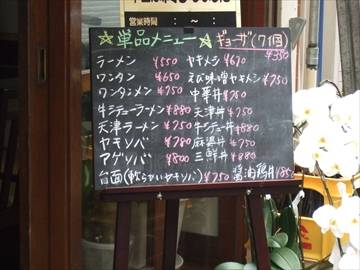 営業時間： ～ ：
☆単品メニュー☆ ギョーザ(7個)
¥350
ラーメン ¥550 ヤキメシ ¥670
ワンタン ¥650 えび味噌ヤキメシ ¥750
ワンタンメン ¥750 中華丼 ¥750
牛シチューラーメン ¥880 天津丼 ¥750
天津ラーメン ¥750 牛シチュー丼 ¥680
ヤキソバ ¥780 麻婆丼 ¥750
アゲソバ ¥800 三鮮丼 ¥880
台面(軟らかいヤキソバ) ¥750 醤油鶏丼 ¥850